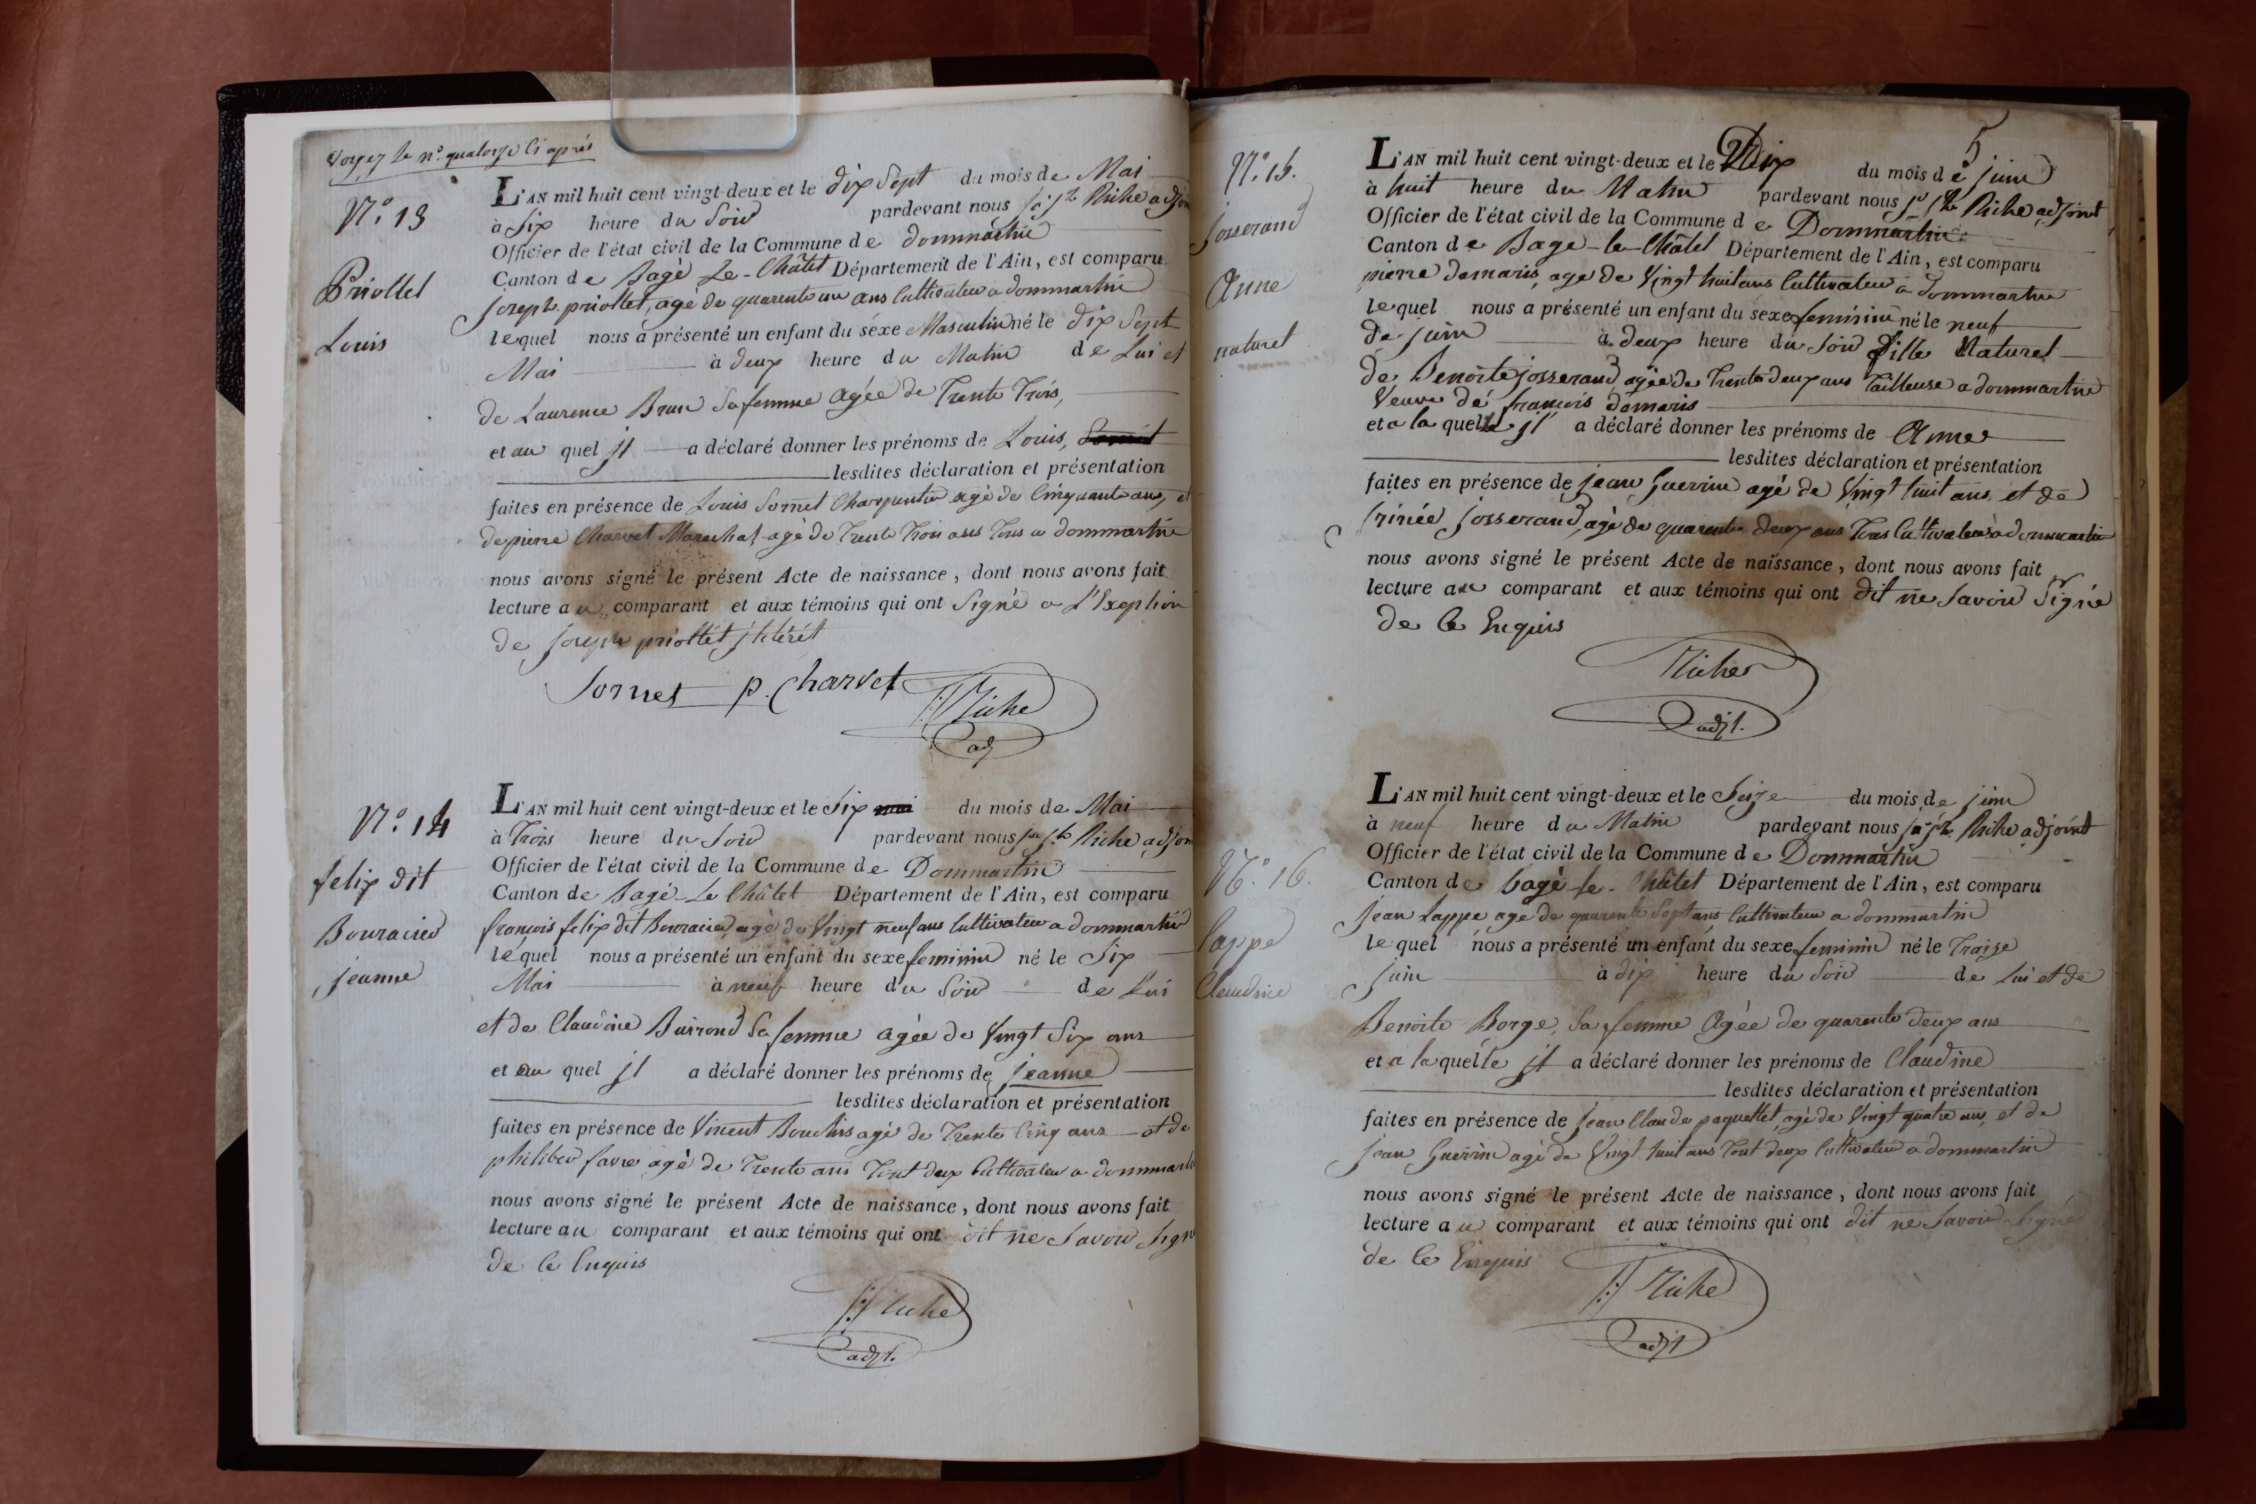 Voyez le n.º quatorze ci après
N.º 13
Priollet
Louis
L'AN mil huit cent vingt-deux et le dix Sept du mois de Mai
à Six heure du Soir pardevant nous Riche adjoin
Officier de l'état civil de la Commune de dommartin
Canton de Bagé Le-Châtel Département de l'Ain, est comparu
joseph priollet, agé de quarente un ans Cultivateur a dommartin
lequel nous a présenté un enfant du séxe Masculin né le dix Sept
Mai à deux heure du Matin de Lui et
de Laurence Brun Sa femme agée de Trente Trois,
et au quel jl a déclaré donner les prénoms de Louis,
lesdites déclaration et présentation
faites en présence de Louis Sornet Charpentier agé de Cinquante ans, et
de pierre Charvet Marechal agé de Trente Trois ans Tous a dommartin
nous avons signé le présent Acte de naissance, dont nous avons fait
lecture au comparant et aux témoins qui ont Signé a L'Exeption
de joseph priollet jlitérét
Sornet p. Charvet Riche
adj
N.º 14
felix dit
Bouracier
jeanne
L'AN mil huit cent vingt-deux et le Six mai du mois de Mai
à Trois heure du Soir pardevant nous Riche adjoin
Officier de l'état civil de la Commune de Dommartin
Canton de Bagé-Le Châtel Département de l'Ain, est comparu
françois felix dit Bouracier, agé de Vingt neuf ans Cultivateur a dommartin
lequel nous a présenté un enfant du sexe feminin né le Six
Mai à neuf heure du Soir de Lui
et de Claudine Buirond Sa femme agée de Vingt Six ans
et au quel jl a déclaré donner les prénoms de jeanne
lesdites déclaration et présentation
faites en présence de Vincent Bouchis agé de Trente Cinq ans et de
philiber favre agé de Trente ans Tout deux Cultivateur a dommartin
nous avons signé le présent Acte de naissance, dont nous avons fait
lecture au comparant et aux témoins qui ont dit ne Savoir Signe
de Ce Enquis
Riche
adjt.
5
N.º 15.
josserand
Anne
naturel
L'AN mil huit cent vingt-deux et le Dix du mois de juin
à huit heure du Matin pardevant nous Riche adjoint
Officier de l'état civil de la Commune de Dommartin
Canton de Bage-le-Châtel Département de l'Ain, est comparu
pierre damaris, age de Vingt huit ans Cultivateur a dommartin
lequel nous a présenté un enfant du séxe feminin né le neuf
de juin à deux heure du Soir fille Naturel
de Benoite josserand, agée de Trente deux ans Tailleuse a dommartin
Veuve de françois damaris
et a la quelle jl a déclaré donner les prénoms de Anne
lesdites déclaration et présentation
faites en présence de jean Guerrin agé de Vingt huit ans et de
jrinée josserand, agé de quarente deux ans Tous Cultivateurs a dommartin
nous avons signé le présent Acte de naissance, dont nous avons fait
lecture au comparant et aux témoins qui ont dit ne Savoir Signé
de Ce Enquis
Riche
adjt.
N.º 16.
Lappe
Claudine
L'AN mil huit cent vingt-deux et le Seize du mois de juin
à neuf heure du Matin pardevant nous Riche adjoint
Officier de l'état civil de la Commune de Dommartin
Canton de bagé-le-Châtel Département de l'Ain, est comparu
jean Lappe age de quarente Sept ans Cultivateur a dommartin
lequel nous a présenté un enfant du sexe feminin né le Traize
juin à dix heure du Soir de Lui et de
Benoite Borge, Sa femme Agée de quarente deux ans
et a la quelle jl a déclaré donner les prénoms de Claudine
lesdites déclaration et présentation
faites en présence de jean Claude paquellet, agé de Vingt quatre ans, et de
jean Guerrin agé de Vingt huit ans Tout deux Cultivateur a dommartin
nous avons signé le présent Acte de naissance, dont nous avons fait
lecture au comparant et aux témoins qui ont dit ne Savoir Signé
de Ce Enquis
Riche
adjt